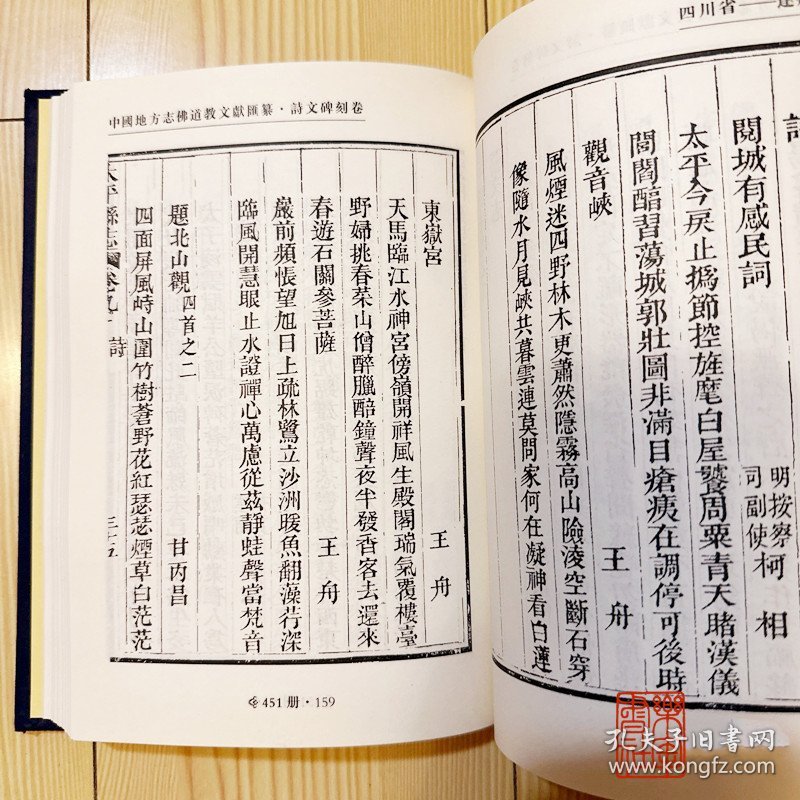 四川省
閱城有感民詞
明按察
司副使柯相
太平今戾止撝節控旌麾白屋饕周粟青天睹漢儀
閭閻醅習蕩城郭壯圖非滿目瘡痍在調停可後時
觀音峽
王舟
風煙迷四野林木更蕭然隱霧高山險淩空斷石穿
像隨水月見峽共暮雲連莫問家何在凝神看白蓮
中國地方志佛道教文獻匯纂·詩文碑刻卷
東嶽宮
王舟
天馬臨江水神宮傍嶺開祥風生殿閣瑞氣覆樓臺
野婦挑春菜山僧醉臘醅鐘聲夜半發香客去還來
春遊石關參菩薩
王舟
巖前頻悵望旭日上疏林鷺立沙洲暖魚翻藻荇深
臨風開慧眼止水證禪心萬慮從茲靜蛙聲當梵音
題北山觀四首之二
甘丙昌
四面屏風峙山圍竹樹蒼野花紅瑟瑟煙草白茫茫
太平縣志 卷九 詩
三十五
451 册·159
孔夫子旧书网
www.kongfz.com